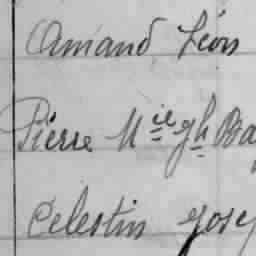 Amand Léon
Pierre M^ie gh Ba
Celestin Josep